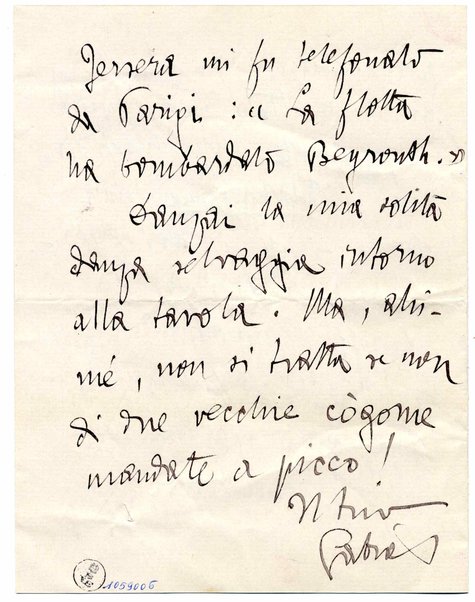 Jersera mi fu telefonato
da Parigi : « La flotta
ha bombardato Beyrouth. »
Danzai la mia solita
danza selvaggia intorno
alla tavola. Ma, ahi-
mé, non si tratta se non
di due vecchie cògome
mandate a picco!
Il tuo
Gabri
1059006